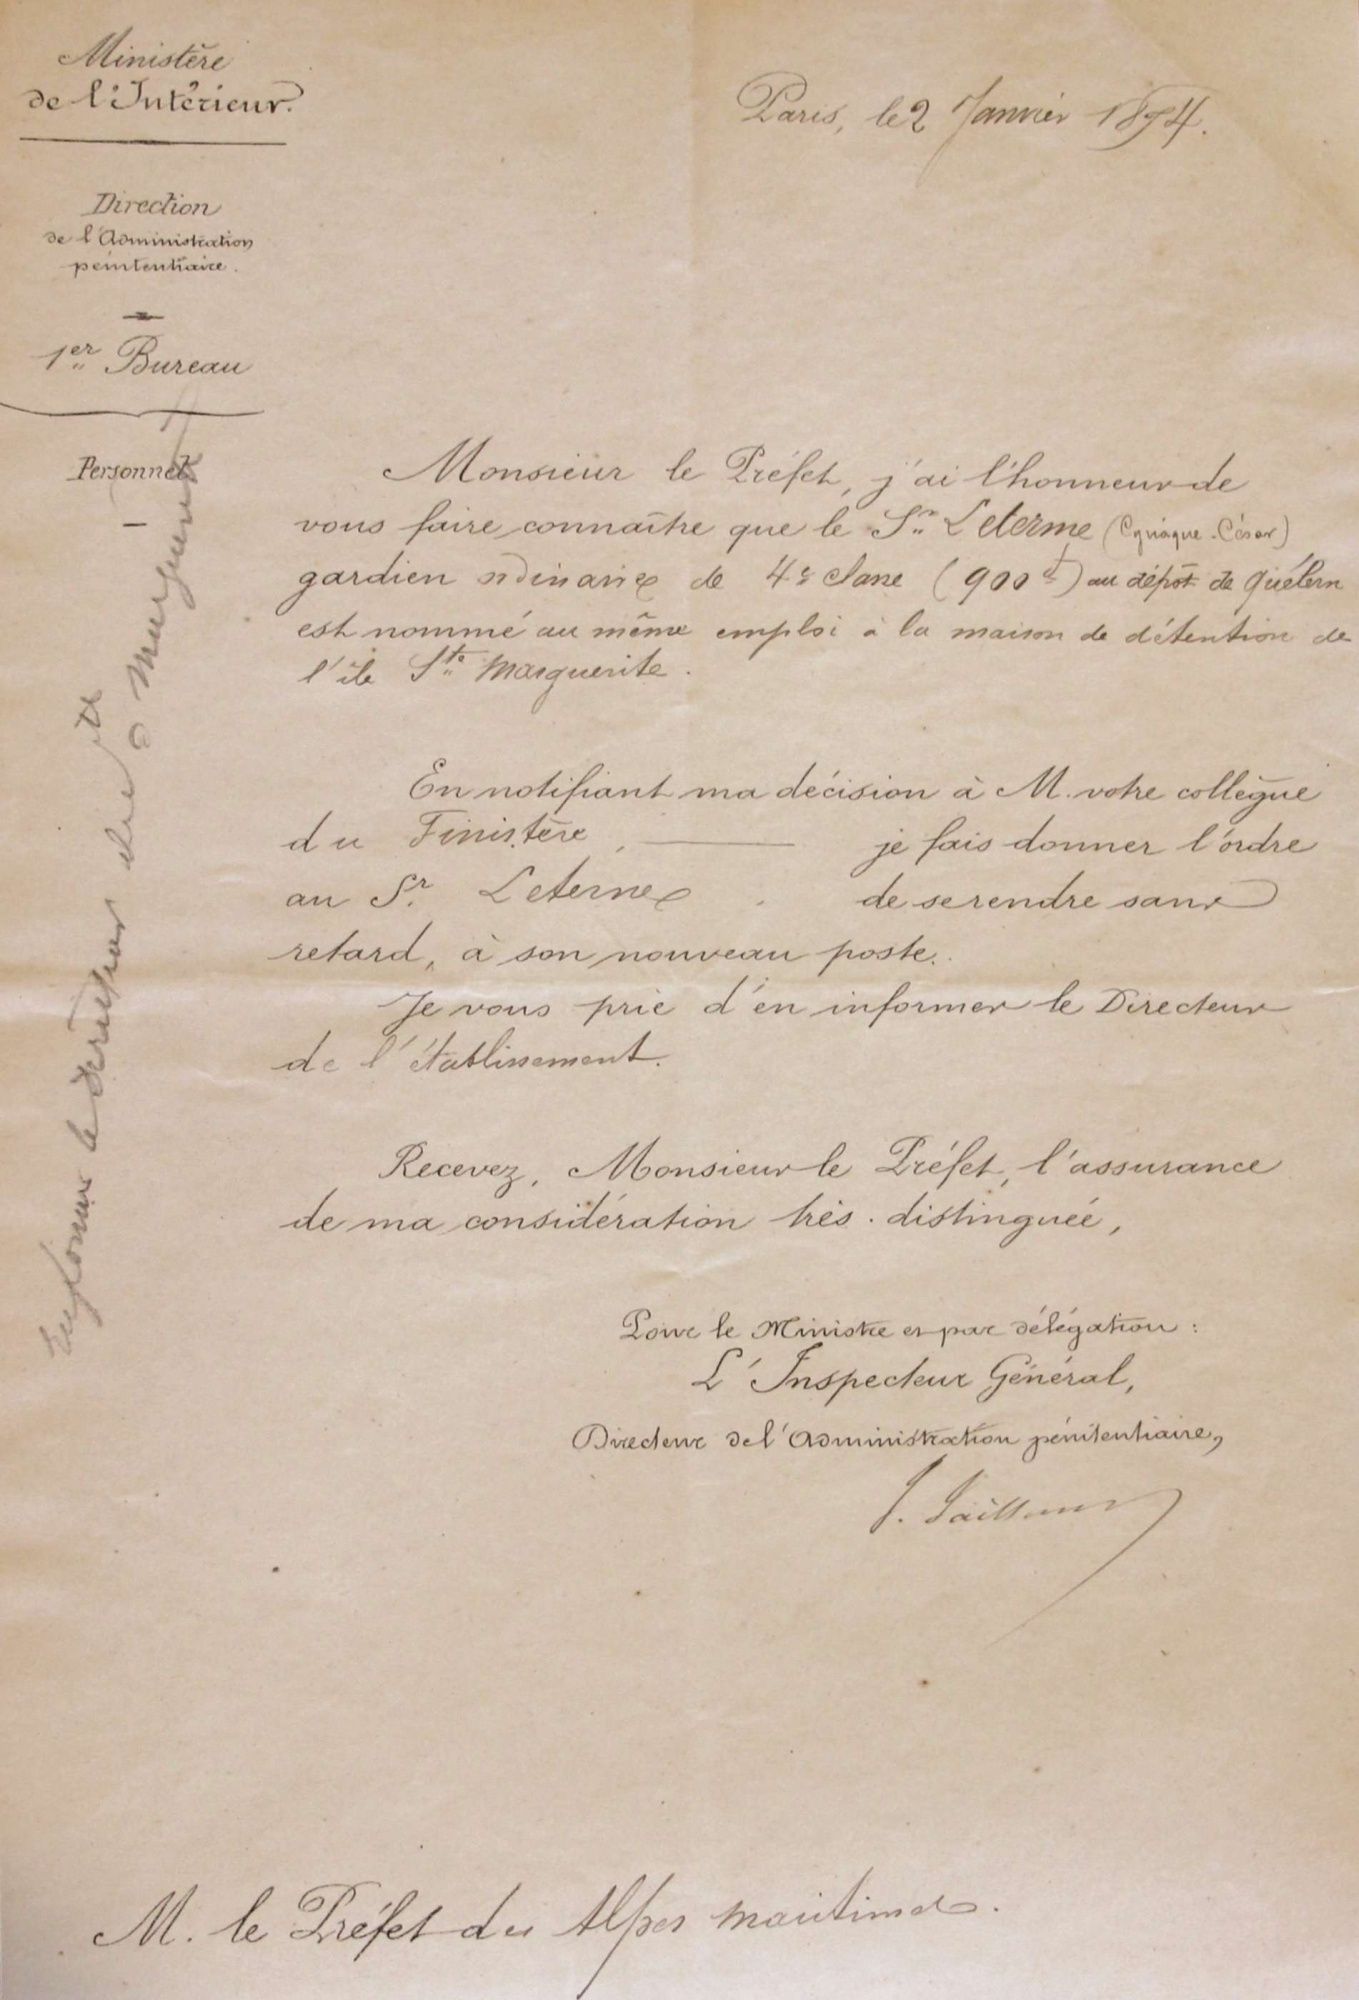 Ministère
de l'Intérieur.
Direction
de l'Administration
pénitentiaire.
1er Bureau
Personnel
Paris, le 2 Janvier 1874.
Monsieur le Préfet, j'ai l'honneur de
vous faire connaître que le Sr Leterme (Cyriaque-César)
gardien ordinaire de 4e classe (900 f) au dépôt de Quélern
est nommé au même emploi à la maison de détention de
l'île Ste Marguerite.
En notifiant ma décision à M. votre collègue
du Finistère, je fais donner l'ordre
au Sr. Leterme de se rendre sans
retard, à son nouveau poste.
Je vous prie d'en informer le Directeur
de l'établissement.
Recevez, Monsieur le Préfet, l'assurance
de ma considération très-distinguée,
Pour le Ministre et par délégation :
L'Inspecteur Général,
Directeur de l'Administration pénitentiaire,
J. Jaillant
M. le Préfet des Alpes maritimes.
Informer le directeur
Marguerite